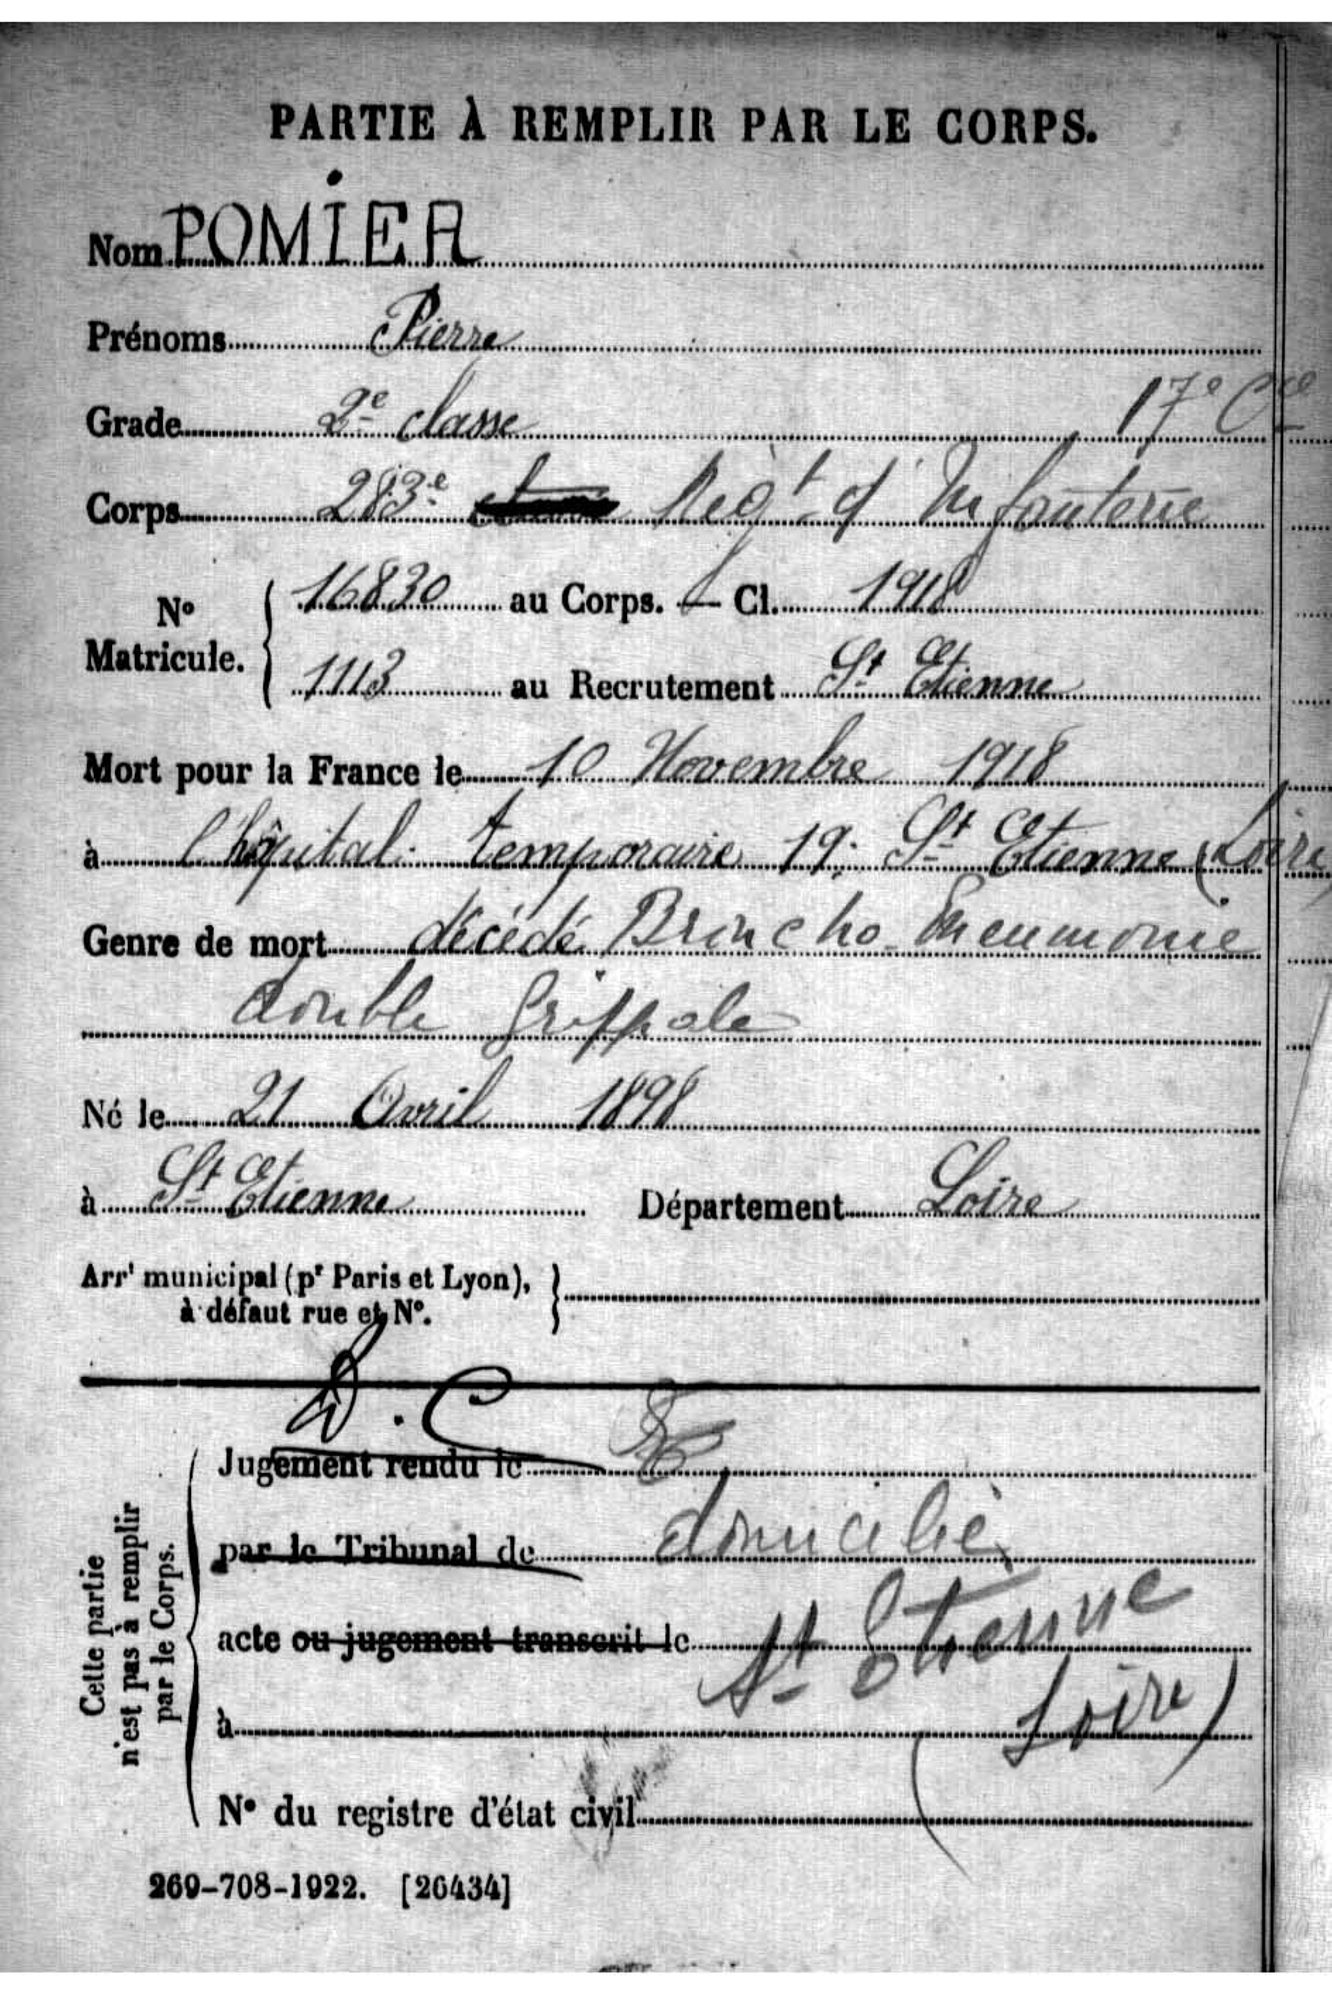 PARTIE À REMPLIR PAR LE CORPS.
Nom POMIER
Prénoms Pierre
Grade 2e classe 17e Cie
Corps 283e Régt d'Infanterie
No Matricule. 16830 au Corps. — Cl. 1918
1113 au Recrutement St Etienne
Mort pour la France le 10 Novembre 1918
à l'hôpital temporaire 19. St Etienne (Loire)
Genre de mort décédé Broncho-Pneumonie
double Grippale
Né le 21 Avril 1898
à St Etienne Département Loire
Arrt municipal (pr Paris et Lyon),
à défaut rue et No.
D.C
Jugement rendu le
par le Tribunal de domicilié
acte ou jugement transcrit le St Etienne
à (Loire)
No du registre d'état civil
Cette partie
n'est pas à remplir
par le Corps.
269-708-1922. [26434]